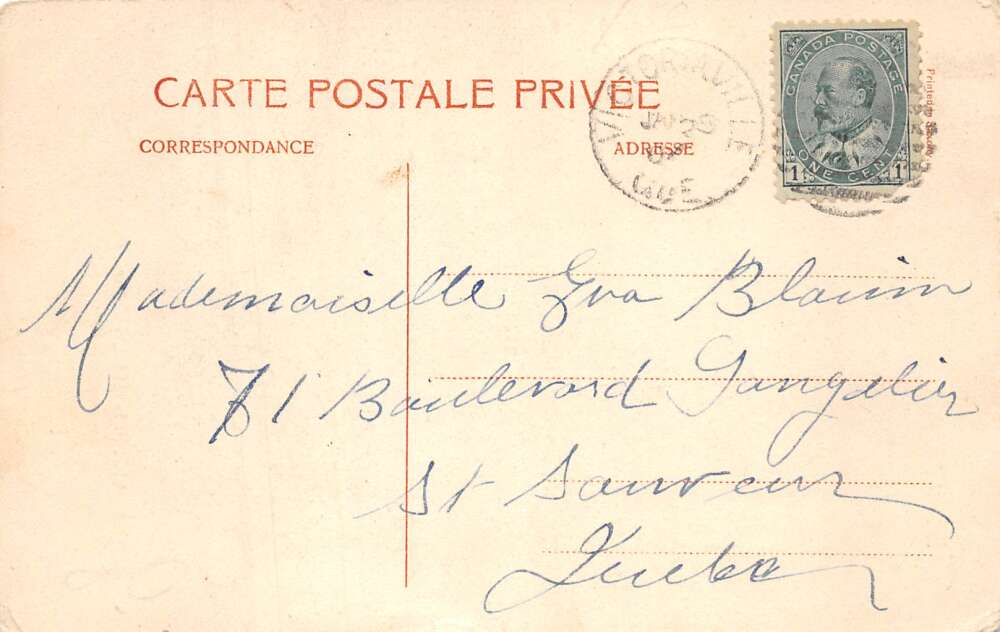 CARTE POSTALE PRIVÉE
CORRESPONDANCE
ADRESSE
VICTORIAVILLE
QUE
CANADA POSTAGE
1 ONE CENT 1
Printed in
Mademoiselle Eva Blouin
71 Boulevard Langelier
St Sauveur
Quebec